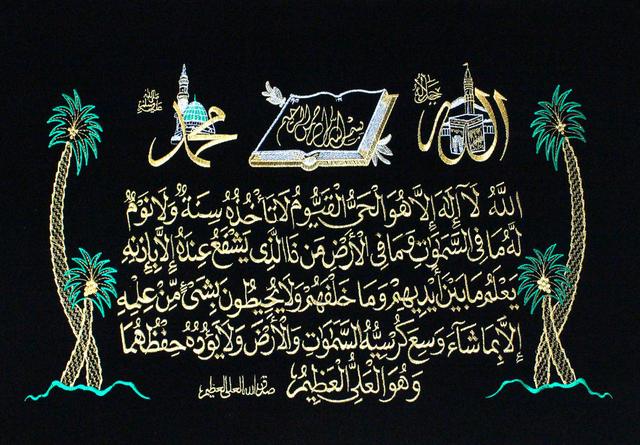 الله جل جلاله
بسم الله الرحمن الرحيم
محمد صلى الله عليه وسلم
اللَّهُ لَا إِلَٰهَ إِلَّا هُوَ الْحَيُّ الْقَيُّومُ لَا تَأْخُذُهُ سِنَةٌ وَلَا نَوْمٌ
لَهُ مَا فِي السَّمَوَاتِ وَمَا فِي الْأَرْضِ مَنْ ذَا الَّذِي يَشْفَعُ عِنْدَهُ إِلَّا بِإِذْنِهِ
يَعْلَمُ مَا بَيْنَ أَيْدِيهِمْ وَمَا خَلْفَهُمْ وَلَا يُحِيطُونَ بِشَيْءٍ مِنْ عِلْمِهِ
إِلَّا بِمَا شَاءَ وَسِعَ كُرْسِيُّهُ السَّمَوَاتِ وَالْأَرْضَ وَلَا يَئُودُهُ حِفْظُهُمَا
وَهُوَ الْعَلِيُّ الْعَظِيمُ صدق الله العلي العظيم